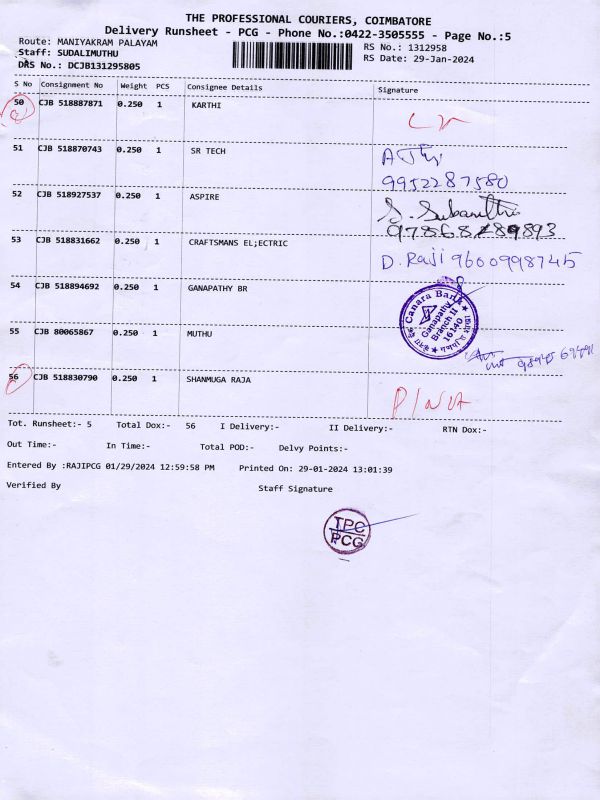 THE PROFESSIONAL COURIERS, COIMBATORE
Delivery Runsheet - PCG - Phone No.:0422-3505555 - Page No.:5
Route: MANIYAKRAM PALAYAM RS No.: 1312958
Staff: SUDALIMUTHU RS Date: 29-Jan-2024
DRS No.: DCJB131295805
S No Consignment No Weight PCS Consignee Details Signature
50 CJB 518887871 0.250 1 KARTHI
51 CJB 518870743 0.250 1 SR TECH
9952287580
52 CJB 518927537 0.250 1 ASPIRE
53 CJB 518831662 0.250 1 CRAFTSMANS EL;ECTRIC
D. Raji 9600998745
54 CJB 518894692 0.250 1 GANAPATHY BR
Canara Bank
Ganapathy
Branch II
16140
55 CJB 80065867 0.250 1 MUTHU
56 CJB 518830790 0.250 1 SHANMUGA RAJA
Tot. Runsheet:- 5 Total Dox:- 56 I Delivery:- II Delivery:- RTN Dox:-
Out Time:- In Time:- Total POD:- Delvy Points:-
Entered By :RAJIPCG 01/29/2024 12:59:58 PM Printed On: 29-01-2024 13:01:39
Verified By Staff Signature
TPC
PCG